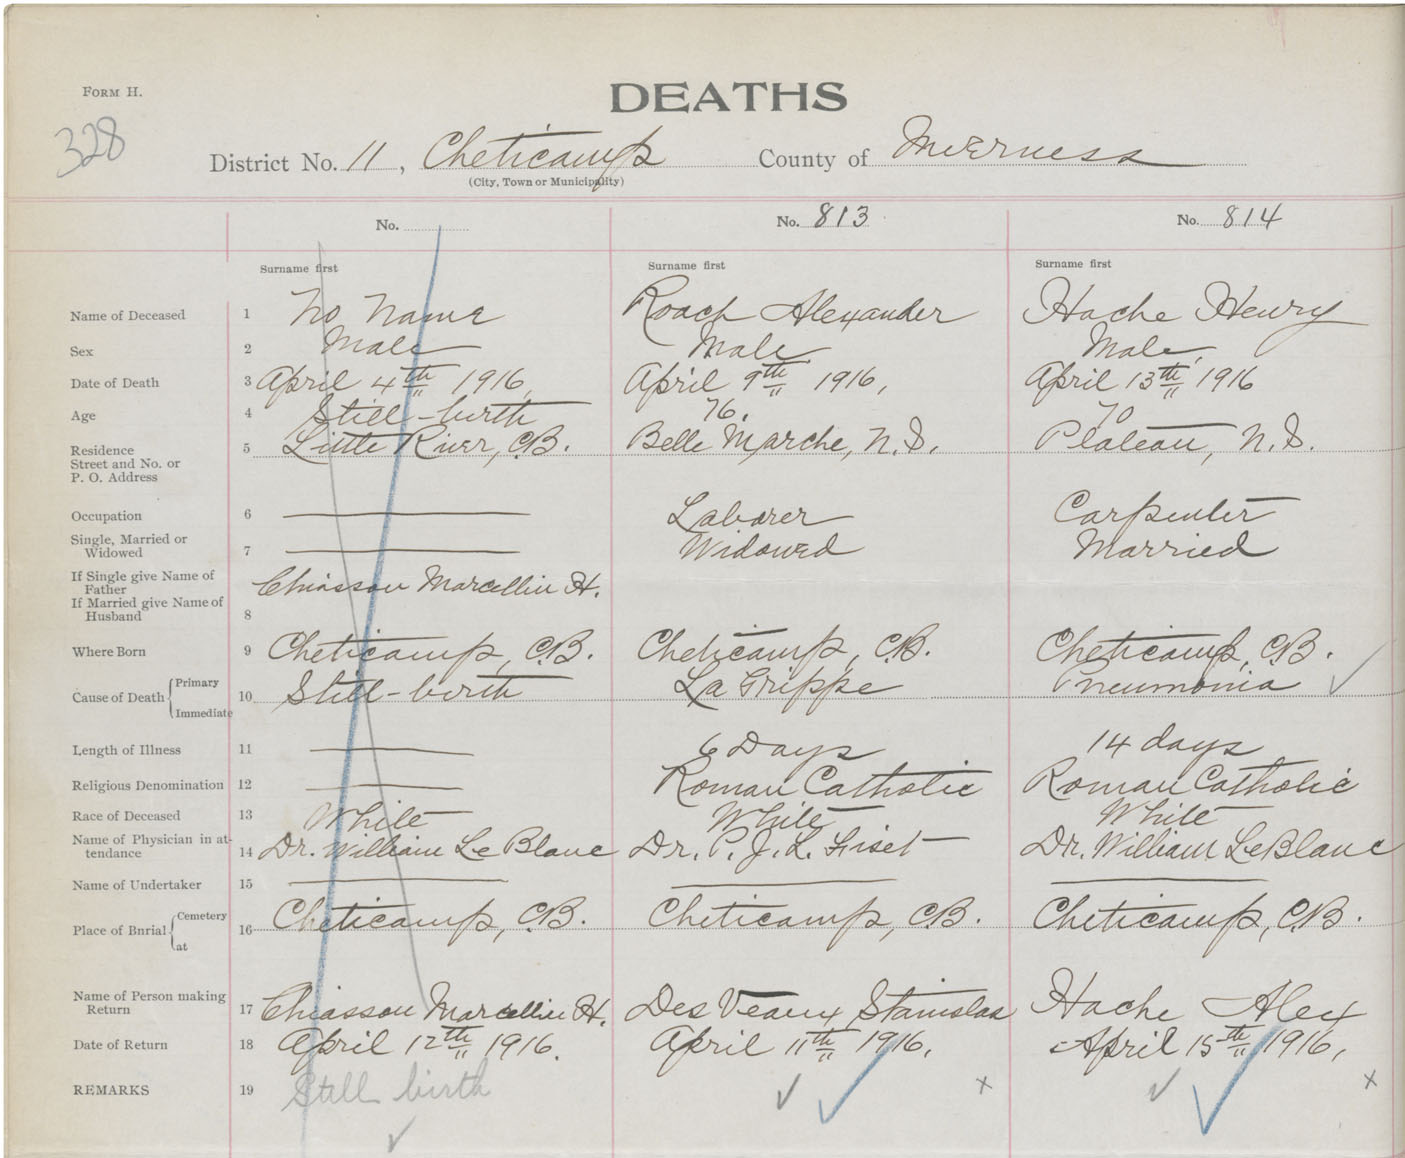 FORM H.
DEATHS
328
District No. 11, Cheticamp County of Inverness
(City, Town or Municipality)
No. No. 813 No. 814
Surname first Surname first Surname first
Name of Deceased 1 No Name Roach Alexander Hache Henry
Sex 2 Male Male Male
Date of Death 3 April 4th 1916, April 9th 1916, April 13th 1916
Age 4 Still-birth 76. 70
Residence 5 Little River, C.B. Belle Marche, N.S. Plateau, N.S.
Street and No. or
P. O. Address
Occupation 6 Laborer Carpenter
Single, Married or
Widowed 7 Widowed Married
If Single give Name of
Father Chiasson Marcellin H.
If Married give Name of
Husband 8
Where Born 9 Cheticamp, C.B. Cheticamp, C.B. Cheticamp, C.B.
Cause of Death { Primary
Immediate 10 Still-birth La Grippe Pneumonia
Length of Illness 11 6 Days 14 days
Religious Denomination 12 Roman Catholic Roman Catholic
Race of Deceased 13 White White White
Name of Physician in at-
tendance 14 Dr. William Le Blanc Dr. P. J. L. Fiset Dr. William LeBlanc
Name of Undertaker 15
Place of Bnrial { Cemetery
at 16 Cheticamp, C.B. Cheticamp, C.B. Cheticamp, C.B.
Name of Person making
Return 17 Chiasson Marcellin H. Des Veaux Stanislas Hache Alex
Date of Return 18 April 12th 1916. April 11th 1916. April 15th 1916,
REMARKS 19 Still birth x x